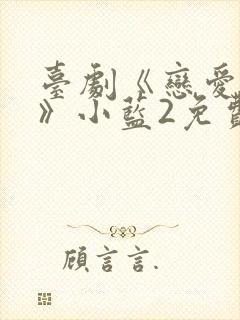 臺劇《戀愛
》小藍2免費
顧言言.